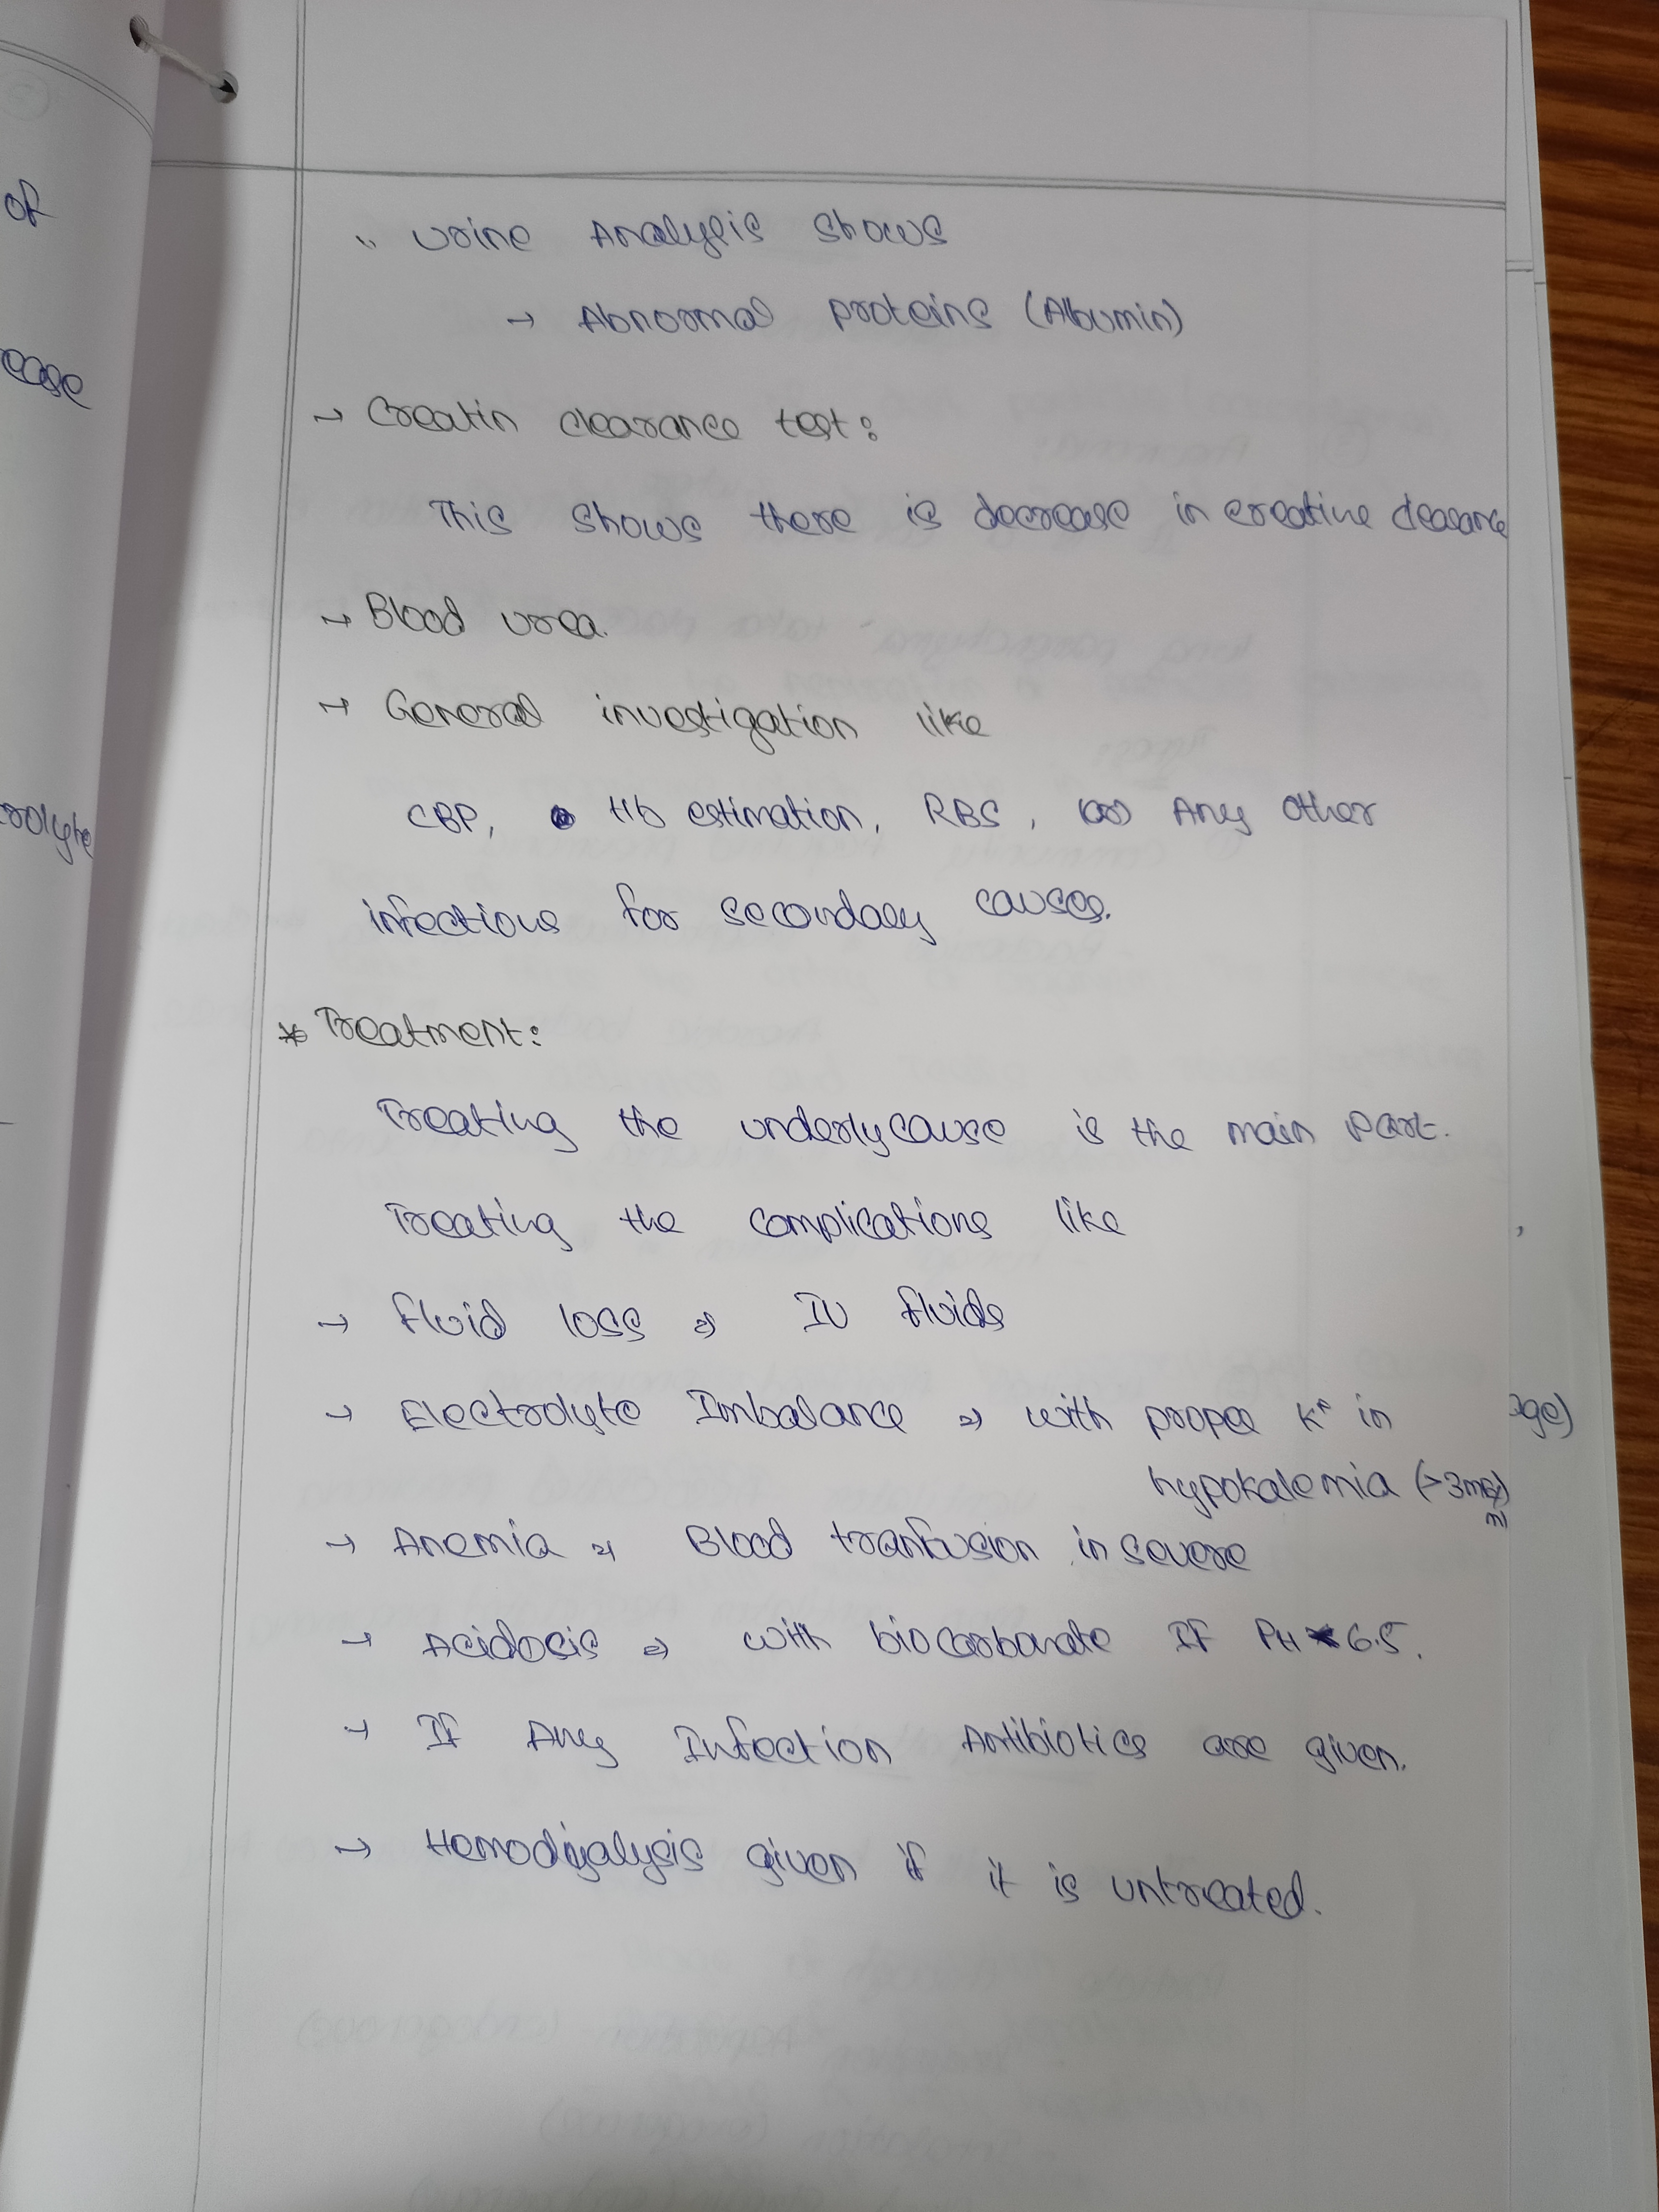 of
ease
rolyte
Urine Analysis shows
→ Abnormal proteins (Albumin)
→ Creatin clearance test:
This shows there is decrease in creative clearance
→ Blood urea.
→ General investigation like
CBP, Hb estimation, RBS, (or) Any other
infections for secondary causes.
* Treatment:
Treating the underlycause is the main part.
Treating the complications like
→ fluid loss ⇒ IV fluids
→ Electrolyte Imbalance ⇒ with proper K⁺ in
hypokalemia (>3mEq/
→ Anemia ⇒ Blood tranfusion in severe
→ Acidosis ⇒ with biocarbonate If PH < 6.5.
→ If Any Infection Antibiotics are given.
→ Hemodiyalysis given if it is untreated.
age)